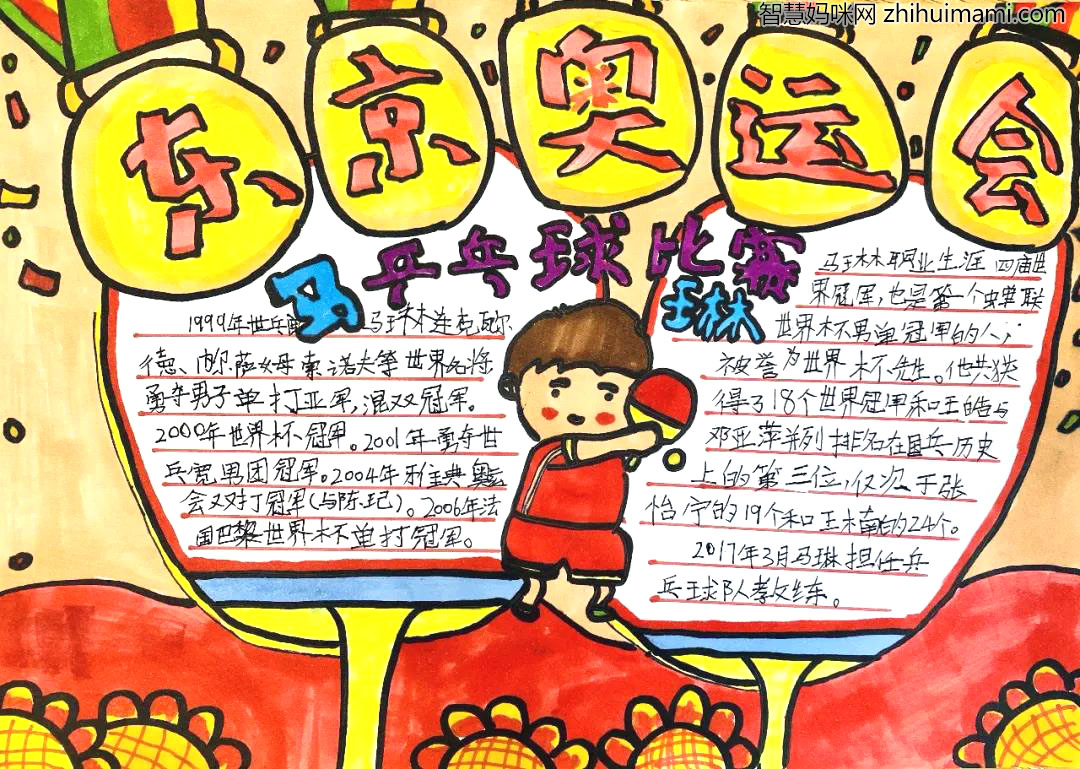 智慧妈咪网 zhihuimami.com
东京奥运会
乒乓球比赛
马琳
1999年世乒 马琳连克瓦尔
德、 萨姆索诺夫等世界名将
勇夺男子单打亚军,混双冠军。
2000年世界杯冠军。2001年勇夺世
乒赛男团冠军。2004年雅典奥运
会双打冠军(与陈玘)。2006年法
国巴黎世界杯单打冠军。
马琳职业生涯四届世
界冠军,也是第一个蝉联
世界杯男单冠军的人,
被誉为世界杯先生。他共获
得了18个世界冠军和王皓与
邓亚萍并列排名在国乒历史
上的第三位,仅次于张
怡宁的19个和王楠的24个。
2017年3月马琳担任乒
乓球队教练。